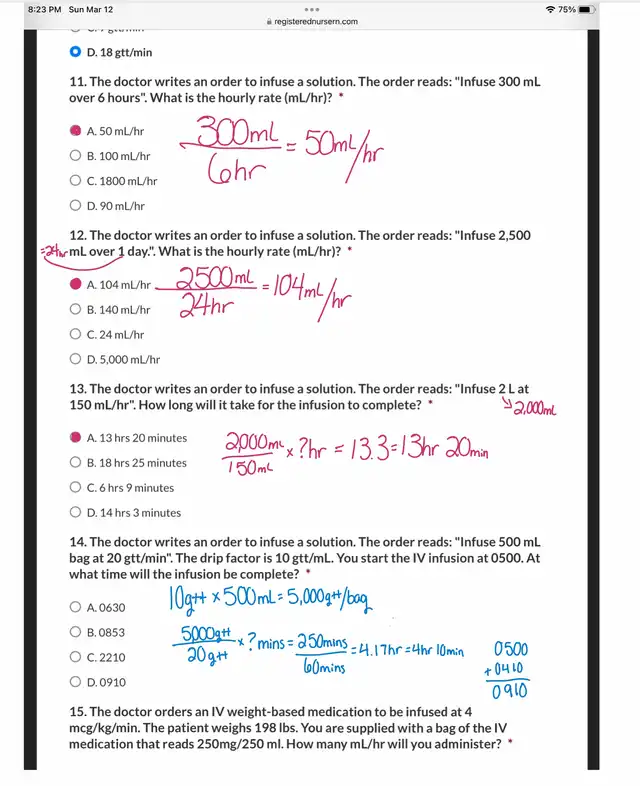 8:23 PM Sun Mar 12
75%
registerednursern.com
D. 18 gtt/min
11. The doctor writes an order to infuse a solution. The order reads: "Infuse 300 mL
over 6 hours". What is the hourly rate (mL/hr)? *
A. 50 mL/hr
B. 100 mL/hr
C. 1800 mL/hr
D. 90 mL/hr
300mL
6hr
= 50mL/hr
12. The doctor writes an order to infuse a solution. The order reads: "Infuse 2,500
=24hr mL over 1 day.". What is the hourly rate (mL/hr)? *
A. 104 mL/hr
B. 140 mL/hr
C. 24 mL/hr
D. 5,000 mL/hr
2500mL
24hr
=104mL/hr
13. The doctor writes an order to infuse a solution. The order reads: "Infuse 2 L at
150 mL/hr". How long will it take for the infusion to complete? *
2,000mL
A. 13 hrs 20 minutes
B. 18 hrs 25 minutes
C. 6 hrs 9 minutes
D. 14 hrs 3 minutes
2,000mL
150mL
x ?hr = 13.3=13hr 20min
14. The doctor writes an order to infuse a solution. The order reads: "Infuse 500 mL
bag at 20 gtt/min". The drip factor is 10 gtt/mL. You start the IV infusion at 0500. At
what time will the infusion be complete? *
A. 0630
B. 0853
C. 2210
D. 0910
10gtt x 500mL = 5,000gtt/bag
5000gtt
20gtt
x ? mins = 250mins
60mins
=4.17hr=4hr 10min
0500
+0410
0910
15. The doctor orders an IV weight-based medication to be infused at 4
mcg/kg/min. The patient weighs 198 lbs. You are supplied with a bag of the IV
medication that reads 250mg/250 ml. How many mL/hr will you administer? *